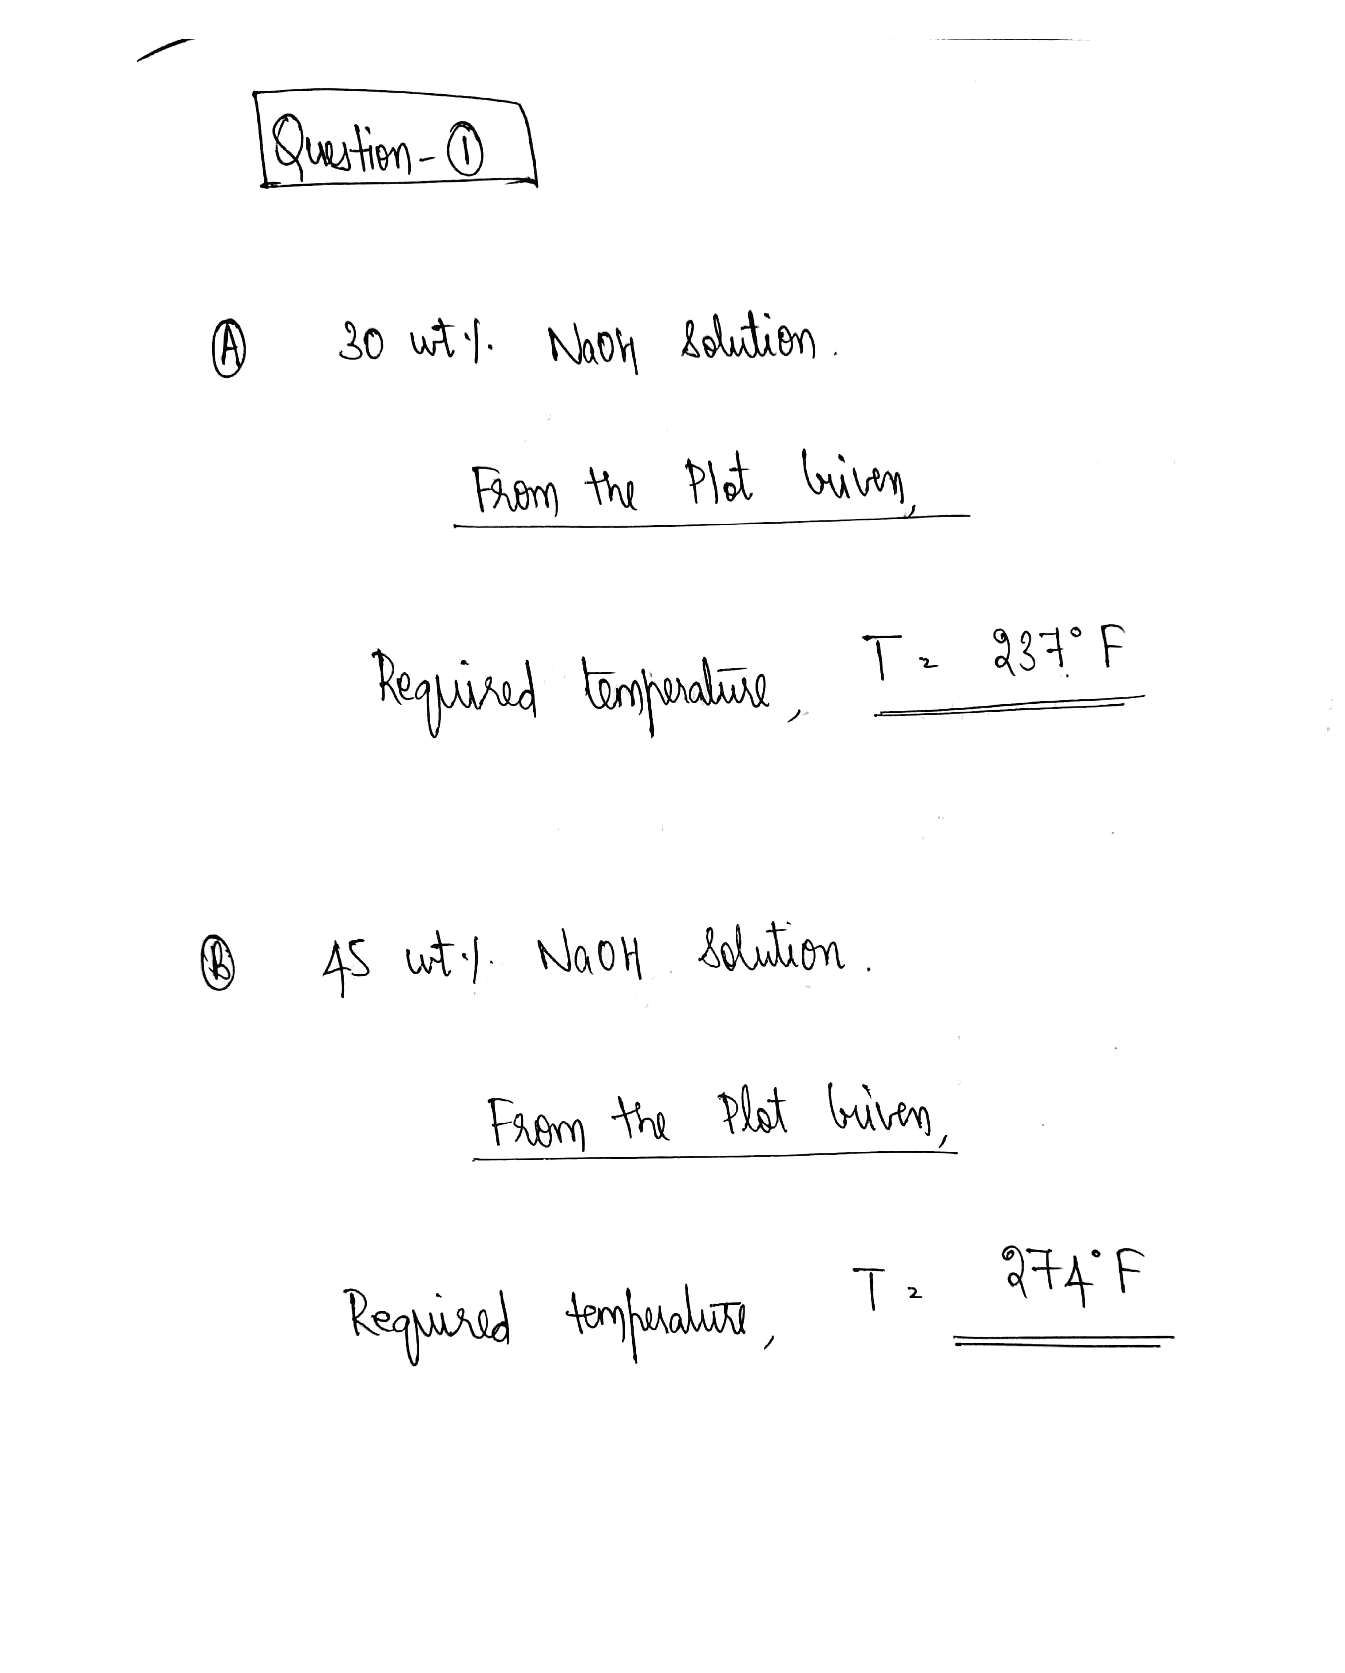 Question-①
Ⓐ 30 wt·/. NaOH Solution.
From the Plot Given,
Required temperature, T = 237°F
Ⓑ 45 wt·/. NaOH Solution.
From the Plot Given,
Required temperature, T = 274°F